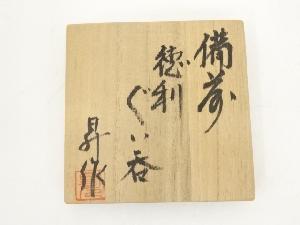 備前
徳利
ぐい呑
昇作